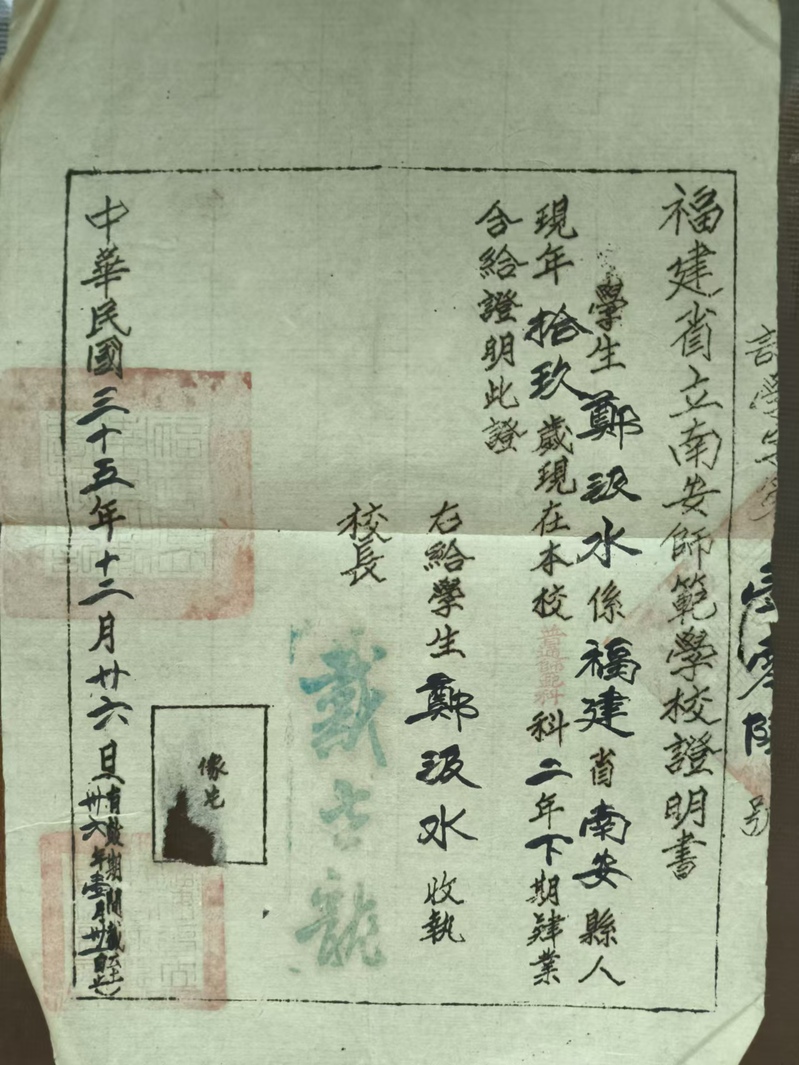 福建省立南安師範學校證明書
學生鄭汲水係福建省南安縣人
現年拾玖歲現在本校普通師範科科二年下期肄業
合給證明此證
右給學生鄭汲水收執
校長
戴 龍
像片
中華民國三十五年十二月廿六日
有效期間截至
卅六年壹月卅一日止
號